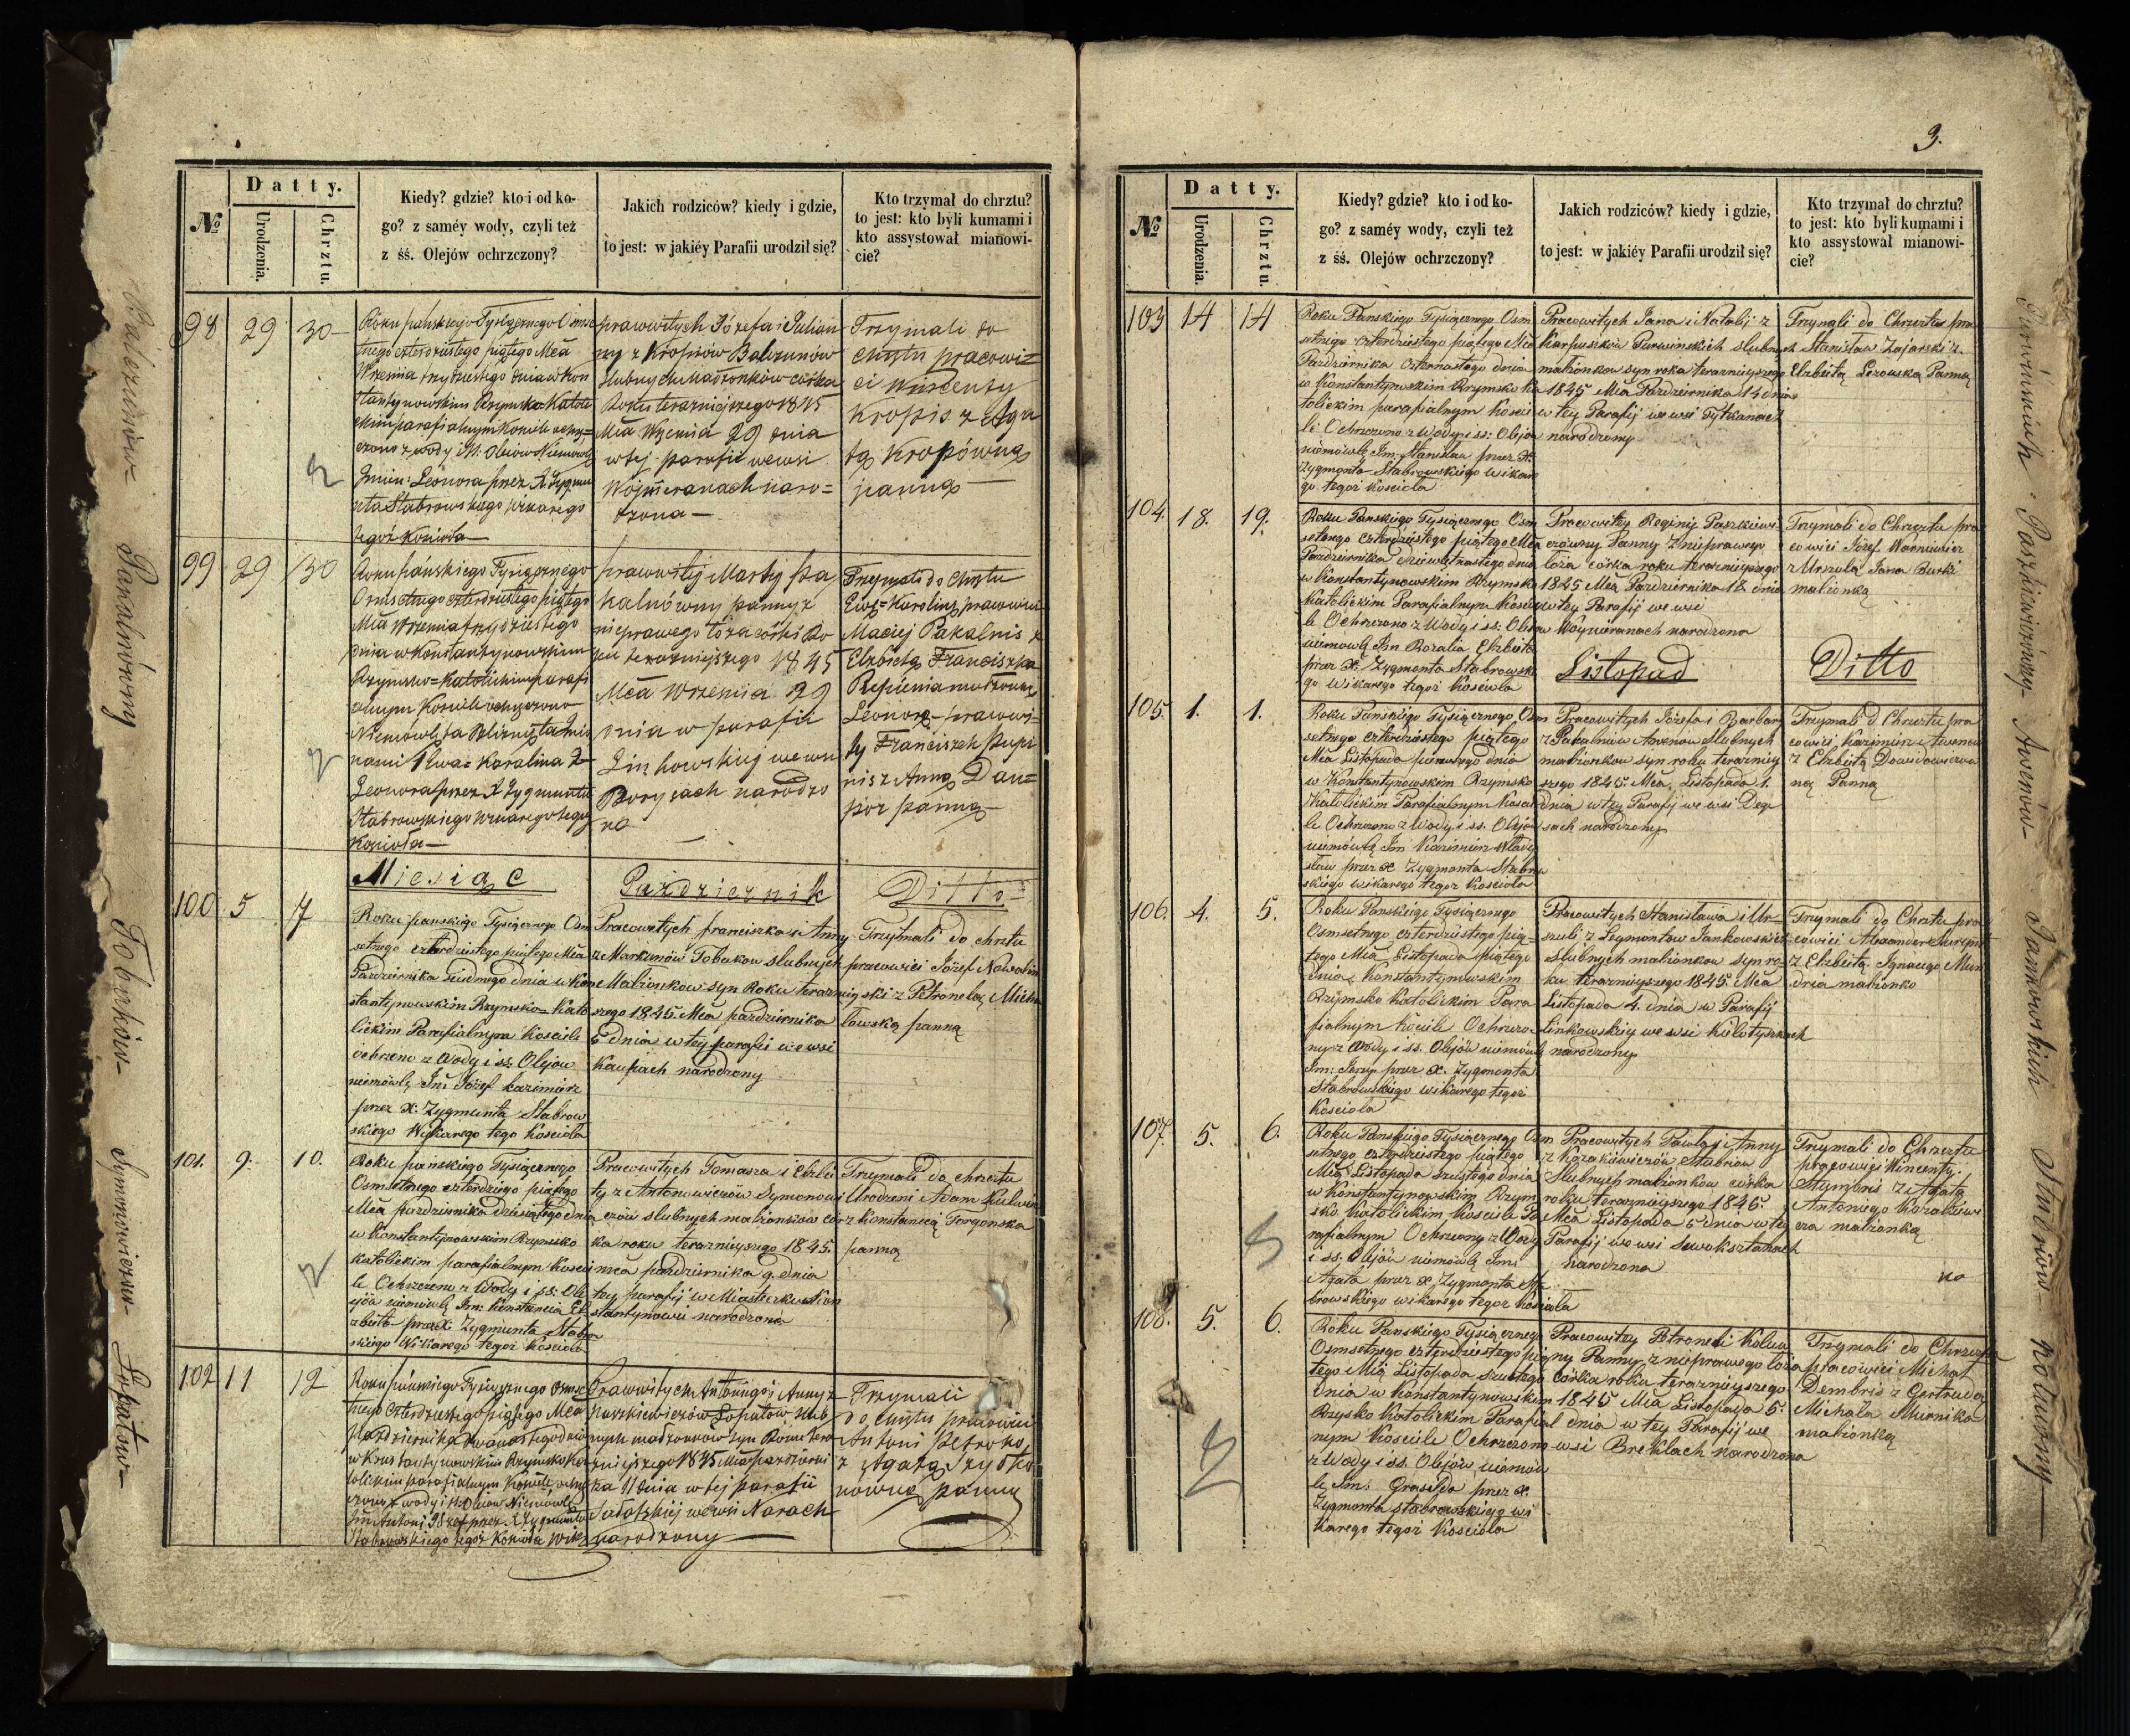 3.
№
Datty.
Urodzenia.
Chrztu.
Kiedy? gdzie? kto i od ko-
go? z saméy wody, czyli też
z śś. Olejów ochrzczony?
Jakich rodziców? kiedy i gdzie,
to jest: w jakiéy Parafii urodził się?
Kto trzymał do chrztu?
to jest: kto byli kumami i
kto assystował mianowi-
cie?
98 29 30
Roku pańskiego Tysiącznego Osmse
tnego czterdziestego piątego Mca
Września trzydziestego dnia w Kon
stantynowskim Rzymsko Katoli
ckim parafialnym Kościele ochrz=
czono z wody i śś. Olejów Niemowlę
Imien: Leonora przez X Zygmu
nta Stabrowskiego wikarego
tegóż Kościoła
pracowitych Józefa i Julian
ny z Kropisów Balczunów
slubnych Małżonków córka
Roku teraznieyszego 1845
Mca Września 29 dnia
w tej parafii we wsi
Wojnieranach naro=
dzona
Trzymali do
Chrztu pracowi=
ci Wincenty
Kropis z Aga
tą Kropówną
panną
99 29 30
Roku pańskiego Tysiącznego
Osmsetnego czterdziestego piątego
Mca Września trzydziestego
dnia w Konstantynowskim
Rzymsko=Katolickim parafi
alnym Kościele ochrzczono
Niemowlęta Bliznięta Imio
nami 1 Ewa=Karolina 2
Leonora przez X Zygmunta
Stabrowskiego wikarego tegoż
Kościoła
pracowitej Marty Pa
kalnówny panny z
nieprawego łóża córki Ro
ku teraznieyszego 1845
Mca Września 29
dnia w parafii
Linkowskiej we wsi
Borysach narodzo
na
Trzymali do Chrztu
Ewę=Karolinę pracowici
Maciej Pakalnis z
Elżbietą Franciszka
Repienia małżonką
Leonorę pracowi=
ty Franciszek Pupi
nis z Anną Dau=
por panną
Miesiąc Pażdziernik Ditto
100 5 7
Roku pańskiego Tysiącznego Osm
setnego czterdziestego piątego Mca
Pazdziernika siudmego dnia w Kon
stantynowskim Rzymsko=Kato
lickim Parafialnym Kosciele
ochrzono z Wody i ss. Olejow
niemówlę Im: Józef Kazimirz
przez X: Zygmunta Stabrow
skiego Wikarego tego Kosciola
Pracowitych franciszka i Anny
z Markunów Tobakow slubnych
Malzonkow syn Roku teraznie
szego 1845. Mca pazdziernika
5 dnia w tey parafii we wsi
Kaupiach narodzony
Trzymali do chrztu
pracowici Józef Nowolin
ski z Petronelą Micha
lowską panną
101. 9. 10.
Roku pańskiego Tysiącznego
Osmsetnego czterdziego piątego
Mca pazdziernika dziesiątego dnia
w Konstantynowskim Rzymsko
katolickim parafialnym Kosci
le Ochrzczono z Wody i ss: Ole
jów niemówlę Im: Konstancia El
zbieta przez X: Zygmunta Stabro
skiego Wikarego tegoz Kosciola
Pracowitych Tomasza i Elzbie
ty z Antonowiczów Symonowi
czów slubnych malzonków cór
ka roku teraznieyszego 1845.
mca pazdziernika 9. dnia
tey parafij w Miasteczku Kon
stantynowie narodzona
Trzymali do chrztu
Urodzeni Adam Kulwin
z Konstancią Torgonska
panną
102 11 12
Roku pańskiego Tysiącznego Osmse
tnego czterdziestego piątego Mca
Pazdziernika dwunastego dnia
w Konstantynowskim Rzymsko Ka
tolickim parafialnym Kościele ochrz
czono z wody i śś Olejów Niemowlę
Im Antoni Józef przez X Zygmunta
Stabrowskiego tegóż Kościoła Wik:
Pracowitych Antoniego i Anny z
Paszkiewiczów Łopatów slub
nych małżonków syn Roku tera
znieyszego 1845 Mca pazdzierni
ka 11 dnia w tej parafii
Sałatskiej we wsi Narach
narodzony
Trzymali
do Chrztu pracowici
Antoni Petroko
z Agatą Szyłko
nowną panną
103 14 14
Roku Pańskiego Tysiącznego Osm
setnego czterdziestego piątego Mca
Pazdziernika czternastego dnia
w Konstantynowskim Rzymsko ka
tolickim parafialnym Kosci
le Ochrzczono z Wody i ss: Olejow
niemówlę Im: Stanislaw przez X.
Zygmonta Stabrowskiego Wikare
go tegoz Kosciola
Pracowitych Jana i Natalij z
Karpusków Purwinskich slubnych
malzonkow syn roku teraznieyszego
1845 Mca Pazdziernika 14 dnia
w tey Parafij we wsi Tytkanach
narodzony
Trzymali do Chrzstu pra
Stanislaw Zajarski z.
Elzbietą Lezowską Panną
104. 18. 19.
Roku Pańskiego Tysiącznego Osm
setnego czterdziestego piątego Mca
Pazdziernika dziewiętnastego dnia
w Konstantynowskim Rzymsko
Katolickim Parafialnym Kosci
le Ochrzczono z Wody i ss: Olejow
niemówlę Im Rozalia Elzbieta
przez X: Zygmonta Stabrowskie
go wikarego tegoz Kosciola
Pracowitey Reginij Paszkiewi
czowny Panny z nieprawego
łoża córka roku teraznieyszego
1845 Mca Pazdziernika 18 dnia
w tey Parafij we wsi
Woynieranach narodzona
Trzymali do Chrzstu pra
cowici Józef Wozniewicz
z Urszulą Jana Burki
malzonką
Listopad Ditto
105. 1. 1.
Roku Pańskiego Tysiącznego Osm
setnego czterdziestego piątego
Mca Listopada pierwszego dnia
w Konstantynowskim Rzymsko
Katolickim Parafialnym Kosci
le Ochrzczono z Wody i ss. Olejów
niemówlę Im Kazimierz Wlady
slaw przez X Zygmonta Stabro
skiego wikarego tegoz Kosciola
Pracowitych Józefa i Barbary
z Pakalniow Awenów Slubnych
malzonkow syn roku terazniey
szego 1845 Mca Listopada 1.
dnia w tey Parafij we wsi Degi
sach narodzony
Trzymali d Chrzstu pra
cowici Kazimierz Awenow
z Elzbietą Dowidowiczow
ną Panną
106. 4. 5.
Roku Pańskiego Tysiącznego
Osmsetnego czterdziestego pią=
tego Mca Listopada piątego
dnia Konstantynowskim
Rzÿmsko Katolickim Para
fialnym kosciele Ochrzczo
ny z Wody i ss. Olejów niemówlę
Im: Jerzy przez X. Zygmonta
Stabrowskiego wikarego tegoz
Kosciola
Pracowitych Stanisława i Ur=
szuli z Legmontow Jankowskich
slubnych malzonkow syn ro
ku teraznieyszego 1845. Mca
Listopada 4. dnia w Parafij
Linkowskiey we wsi Kiełotyszkach
narodzony.
Trzymali do Chrztu pra
cowici Alexander
z Elzbietą Ignacego Mun
dria malzonko
107. 5. 6.
Roku Pańskiego Tysiącznego Osm
setnego czterdziestego piątego
Mca Listopada szustego dnia
w Konstantynowskim Rzym
sko Katolickim Kosciele Pa
rafialnym Ochrzczony z Wody
i ss: Olejów niemówlę Im:
Agata przez X. Zygmonta Sta
browskiego wikarego tegoz Kosciola
Pracowitych Pawła i Anny
z Kozakiewiczów Stabriów
Slubnych malzonkow córka
roku teraznieyszego 1845.
Mca Listopada 5 dnia w tey
Parafij we wsi Suwoksztanach
narodzona
Trzymali do Chrzstu
pracowici Wincenty
Stymbris z Agatą
Antoniego Kozakiewi
cza malzonką
108. 5. 6.
Roku Pańskiego Tysiącznego
Osmsetnego czterdziestego pią
tego Mca Listopada szustego
dnia w Konstantynowskim
Rzysko Katolickim Parafial
nym Kosciele Ochrzczono
z Wody i ss. Olejów niemów
le Im: Graselda przez X.
Zygmonta stabrowskiego wi
karego tegoz Kosciola
Pracowitey Petroneli Kolun
ny Panny z nieprawego łoża
córka roku teraznieyszego
1845 Mca Listopada 5.
dnia w tey Parafij we
wsi Breklach narodzona
Trzymali do Chrzstu
pracowici Michał
Dembris z Gertrudą
Michała Murnika
malzonką
Balczunów Panalnówny Tobaków Symonowiczów Łopatow
Purwinskich Paszkiewiczówny Awenów Jankowskich Stabriów Kolunny